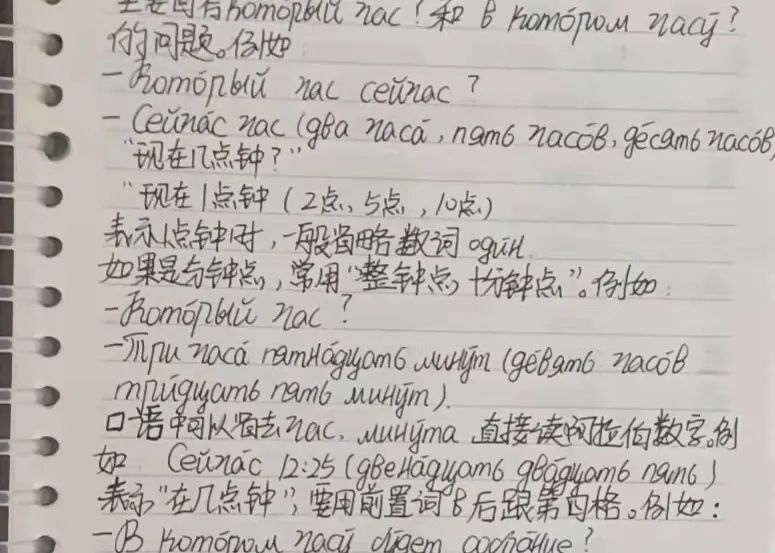 主要回答Который час? 和 В котором часу́?
的问题。例如
- Кото́рый час сейчас?
- Сейча́с час (два часа́, пять часо́в, де́сять часо́в,
"现在几点钟?"
"现在1点钟 (2点, 5点, 10点)
表示1点钟时, 一般省略数词 оди́н.
如果是分钟点, 常用"整钟点+分钟点"。例如:
- Кото́рый час?
- Три часа́ пятна́дцать мину́т (де́вять часо́в
три́дцать пять мину́т).
口语中可以省去час, мину́та 直接读阿拉伯数字。例
如 Сейча́с 12:25 (двена́дцать два́дцать пять)
表示"在几点钟", 要用前置词 в 后跟第四格。例如:
- В кото́ром часу́ бу́дет собрание?